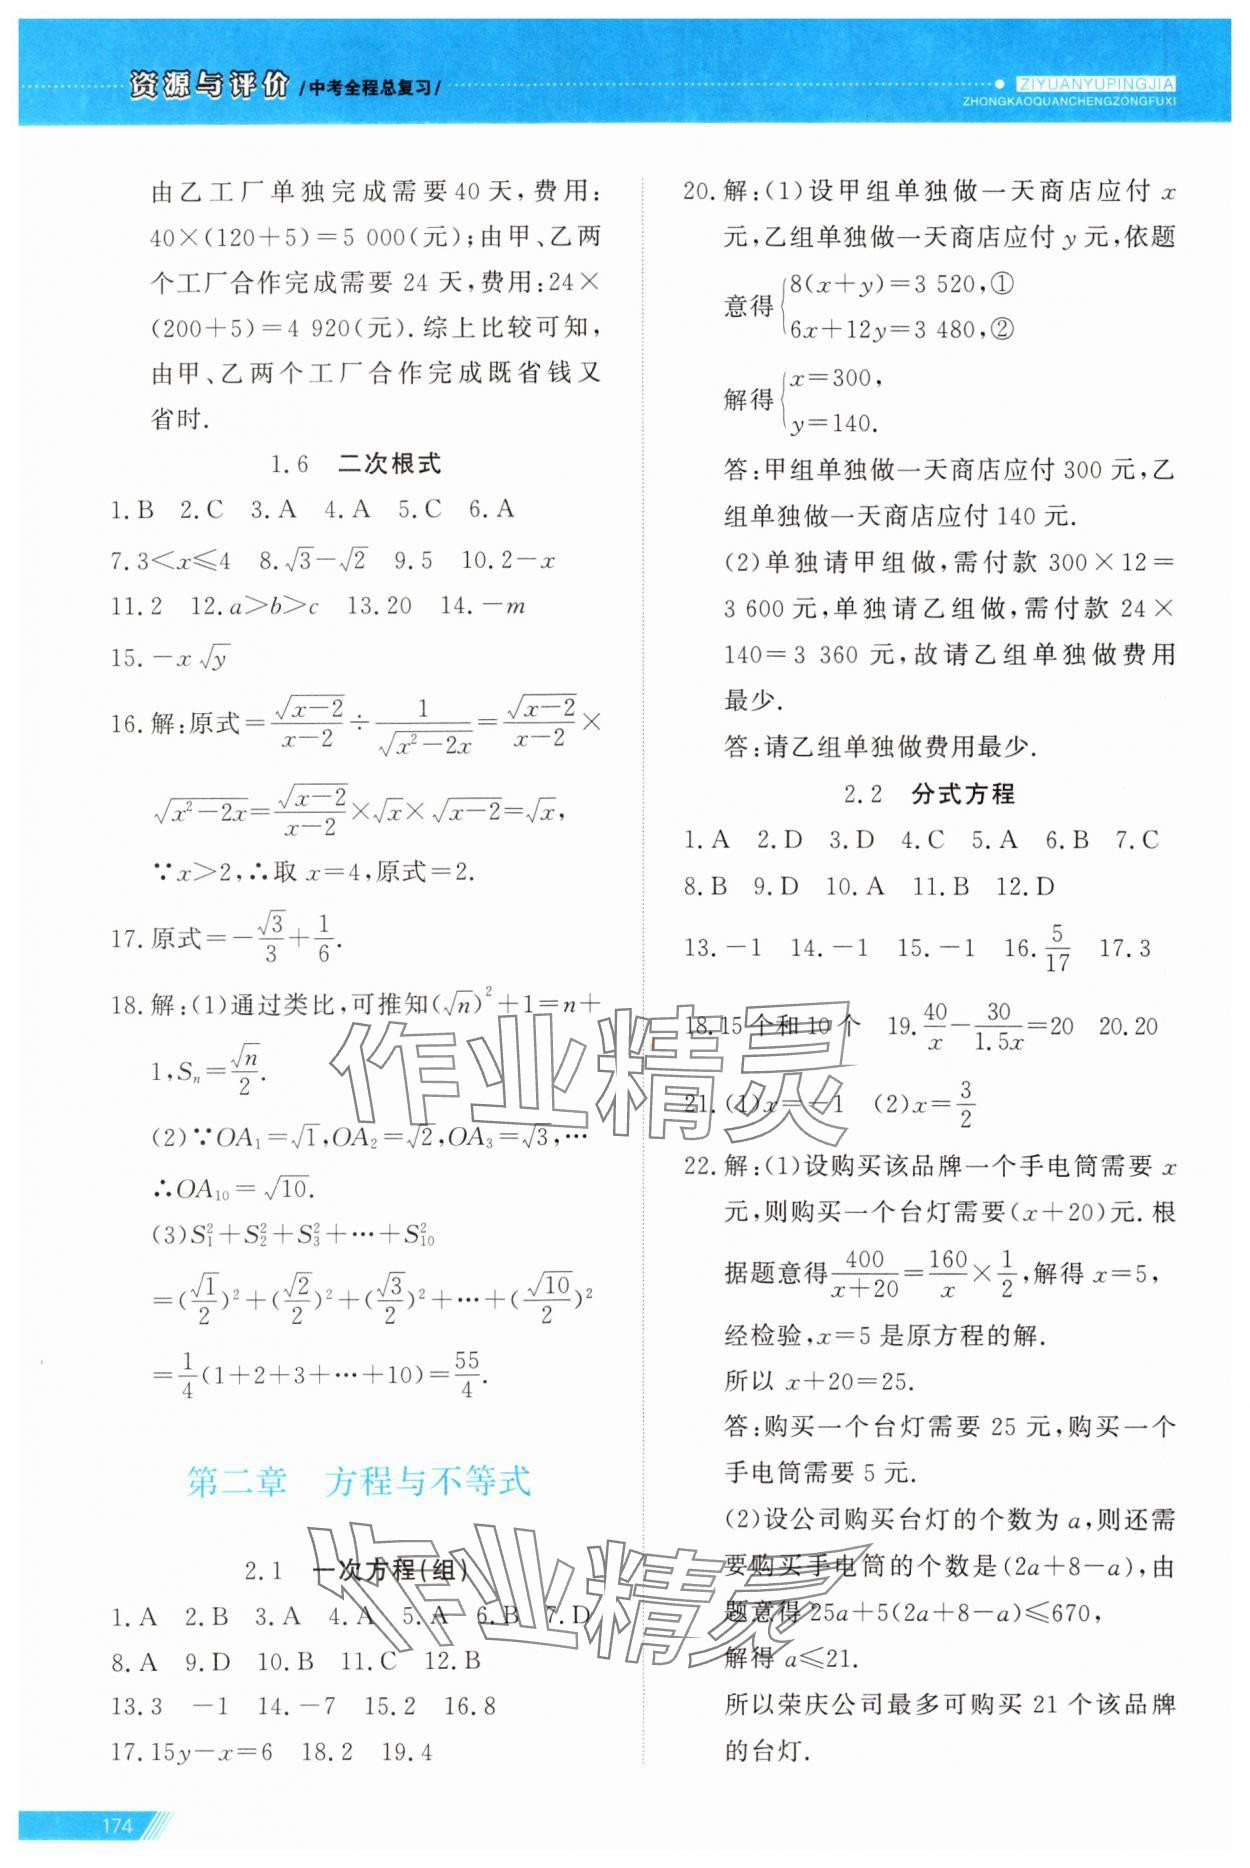 资源与评价 /中考全程总复习/
ZIYUANYUPINGJIA
ZHONGKAOQUANCHENGZONGFUXI
由乙工厂单独完成需要40天,费用:
40×(120+5)=5 000(元);由甲、乙两
个工厂合作完成需要 24 天,费用:24×
(200+5)=4 920(元).综上比较可知,
由甲、乙两个工厂合作完成既省钱又
省时.
1.6 二次根式
1.B 2.C 3.A 4.A 5.C 6.A
7.3<x≤4 8.√3-√2 9.5 10.2-x
11.2 12.a>b>c 13.20 14.-m
15.-x√y
16.解:原式=√(x-2)/(x-2)÷1/√(x²-2x)=√(x-2)/(x-2)×
√(x²-2x)=√(x-2)/(x-2)×√x×√(x-2)=√x,
∵x>2,∴取 x=4,原式=2.
17.原式=-√3/3+1/6.
18.解:(1)通过类比,可推知(√n)²+1=n+
1,Sₙ=√n/2.
(2)∵OA₁=√1,OA₂=√2,OA₃=√3,…
∴OA₁₀=√10.
(3)S₁²+S₂²+S₃²+…+S₁₀²
=(√1/2)²+(√2/2)²+(√3/2)²+…+(√10/2)²
=1/4(1+2+3+…+10)=55/4.
第二章 方程与不等式
2.1 一次方程(组)
1.A 2.B 3.A 4.A 5.A 6.B 7.D
8.A 9.D 10.B 11.C 12.B
13.3 -1 14.-7 15.2 16.8
17.15y-x=6 18.2 19.4
174
20.解:(1)设甲组单独做一天商店应付 x
元,乙组单独做一天商店应付 y 元,依题
意得{8(x+y)=3 520,①
6x+12y=3 480,②
解得{x=300,
y=140.
答:甲组单独做一天商店应付 300 元,乙
组单独做一天商店应付 140 元.
(2)单独请甲组做,需付款 300×12=
3 600 元,单独请乙组做,需付款 24×
140=3 360 元,故请乙组单独做费用
最少.
答:请乙组单独做费用最少.
2.2 分式方程
1.A 2.D 3.D 4.C 5.A 6.B 7.C
8.B 9.D 10.A 11.B 12.D
13.-1 14.-1 15.-1 16.5/17 17.3
18.15 个和 10 个 19.40/x-30/1.5x=20 20.20
21.(1)x=-1 (2)x=3/2
22.解:(1)设购买该品牌一个手电筒需要 x
元,则购买一个台灯需要(x+20)元.根
据题意得400/(x+20)=160/x×1/2,解得 x=5,
经检验,x=5 是原方程的解.
所以 x+20=25.
答:购买一个台灯需要 25 元,购买一个
手电筒需要 5 元.
(2)设公司购买台灯的个数为 a,则还需
要购买手电筒的个数是(2a+8-a),由
题意得 25a+5(2a+8-a)≤670,
解得 a≤21.
所以荣庆公司最多可购买 21 个该品牌
的台灯.
作业精灵
作业精灵